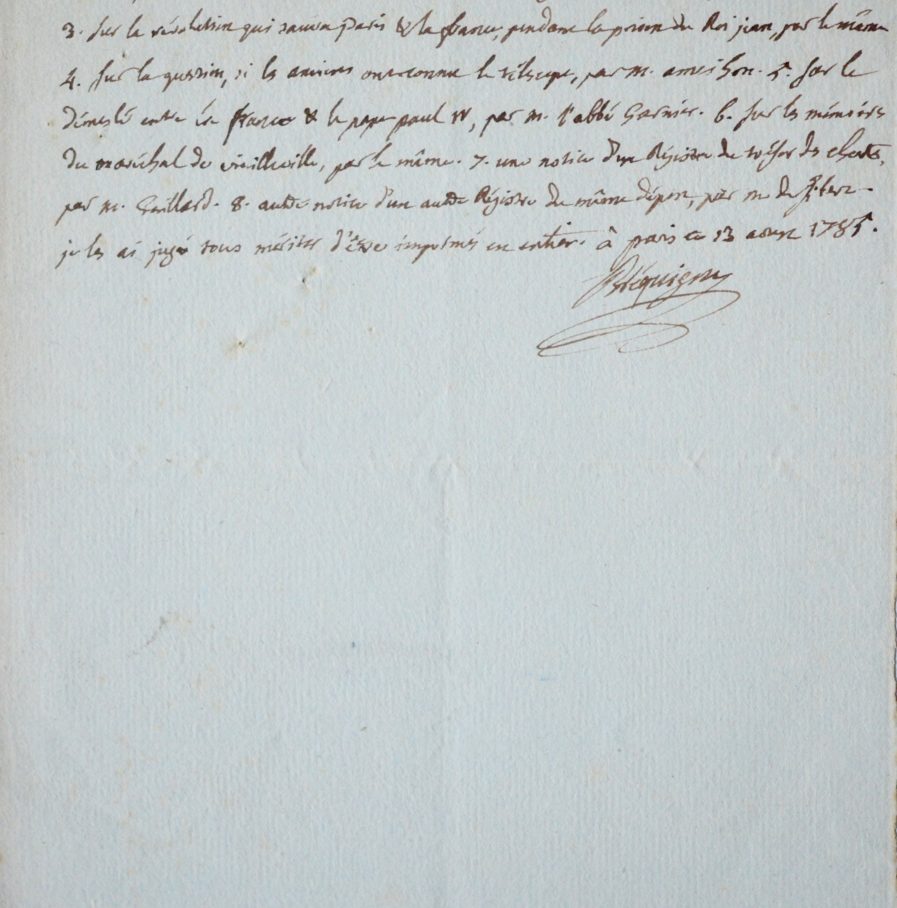 3. sur la révolution qui sauva paris & la france, pendant la prison du Roi jean, par le même
4. sur la question, si les anciens ont connu le télescope, par m. ameilhon. 5. sur le
démeslé entre la france & le pape paul IV, par m. l'abbé Garnier. 6. sur les mémoires
du maréchal de vieilleville, par le même. 7. une notice d'un Régistre du trésor des chartes,
par m. Gaillard. 8. autre notice d'un autre Régistre du même dépost, par m. de
je les ai jugé tous mériter d'être imprimés en entier. à paris ce 13 aoust 1785.
Bréquigny